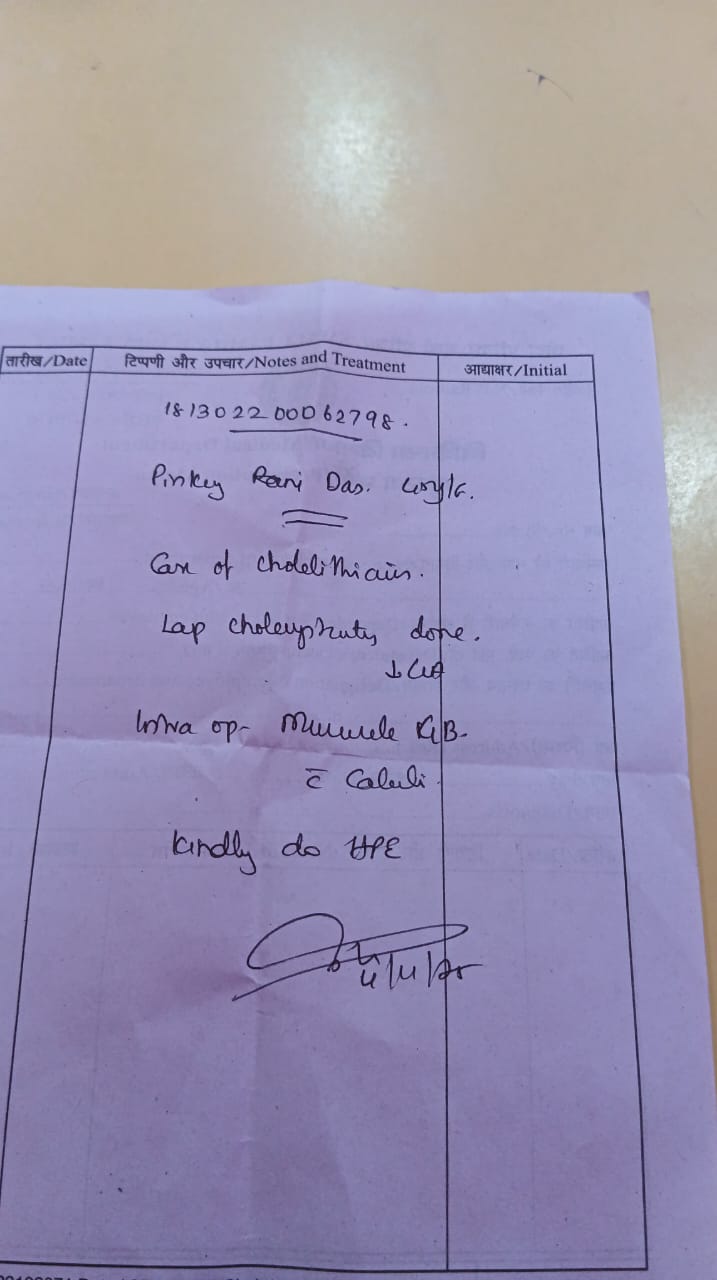 तारीख/Date टिप्पणी और उपचार/Notes and Treatment आद्याक्षर/Initial
181302200062798.
Pinkey Rani Das.
Case of cholelithiasis.
Lap cholecystectomy done.
↓ GA
Intra op- Mucocele GB-
c̄ Calculi.
Kindly do HPE